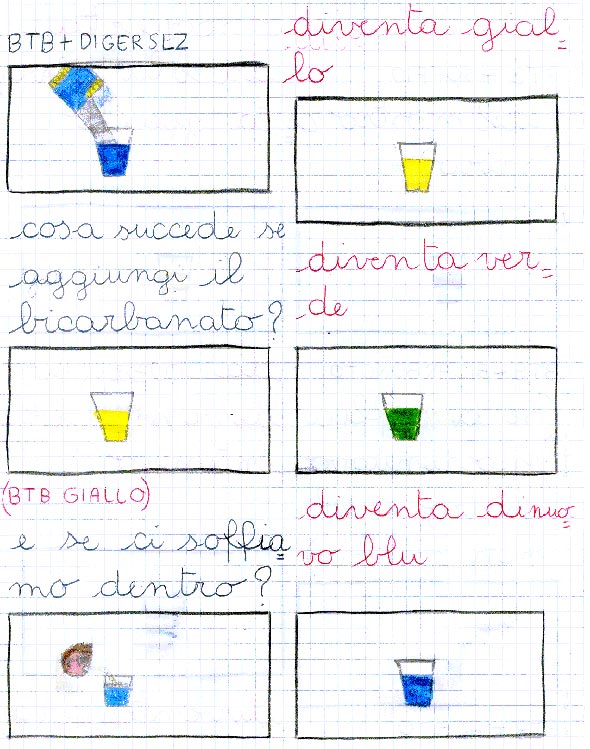 BTB + DIGERSLZ
diventa gial=
lo
cosa succede se
aggiungi il
bicarbanato?
diventa ver=
de
(BTB GIALLO)
e se ci soffia=
mo dentro?
diventa dinuo=
vo blu